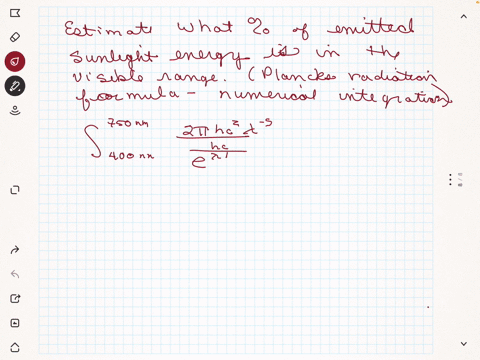 Estimate what % of emitted
sunlight energy is in the
visible range. (Plancks radiation
formula - numerical integration)
∫ 750 nm 400 nm 2πhc² λ⁻⁵
hc
e